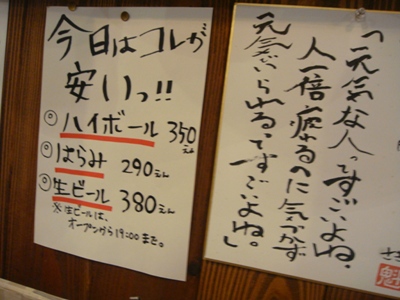 今日はコレが
安いっ!!
◎ハイボール 350えん
◎はらみ 290えん
◎生ビール 380えん
※生ビールは、
オープンから19:00まで。
「元気な人ってすごいよね、
人一倍疲れるのに気づかず
元気でいられるってすごいよね。」